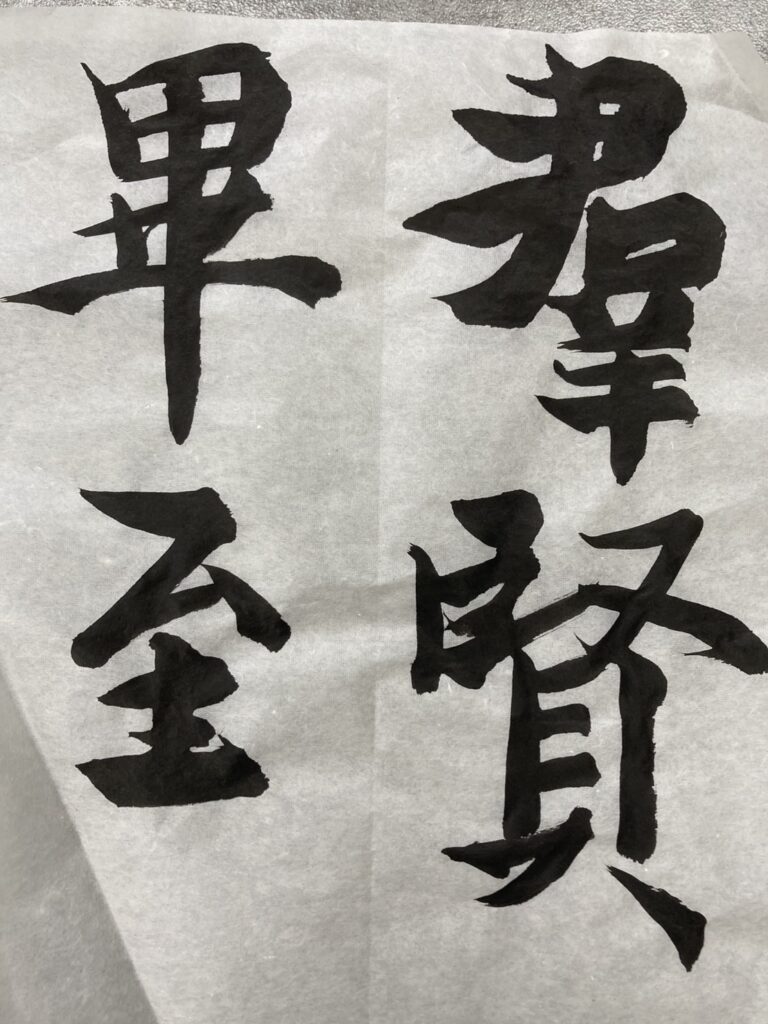 羣賢
畢至